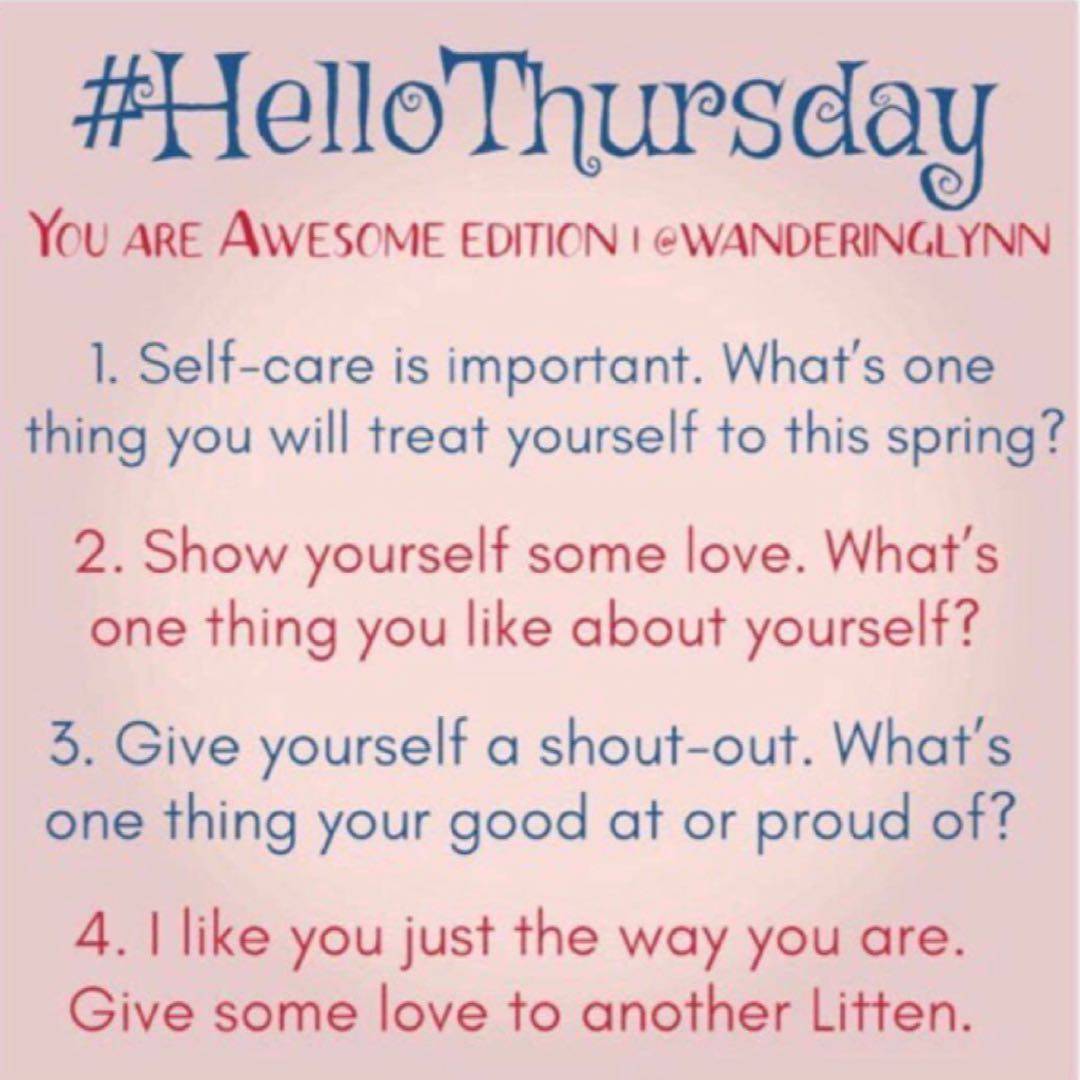 #HelloThursday
YOU ARE AWESOME EDITION | @WANDERINGLYNN
1. Self-care is important. What's one
thing you will treat yourself to this spring?
2. Show yourself some love. What's
one thing you like about yourself?
3. Give yourself a shout-out. What's
one thing your good at or proud of?
4. I like you just the way you are.
Give some love to another Litten.